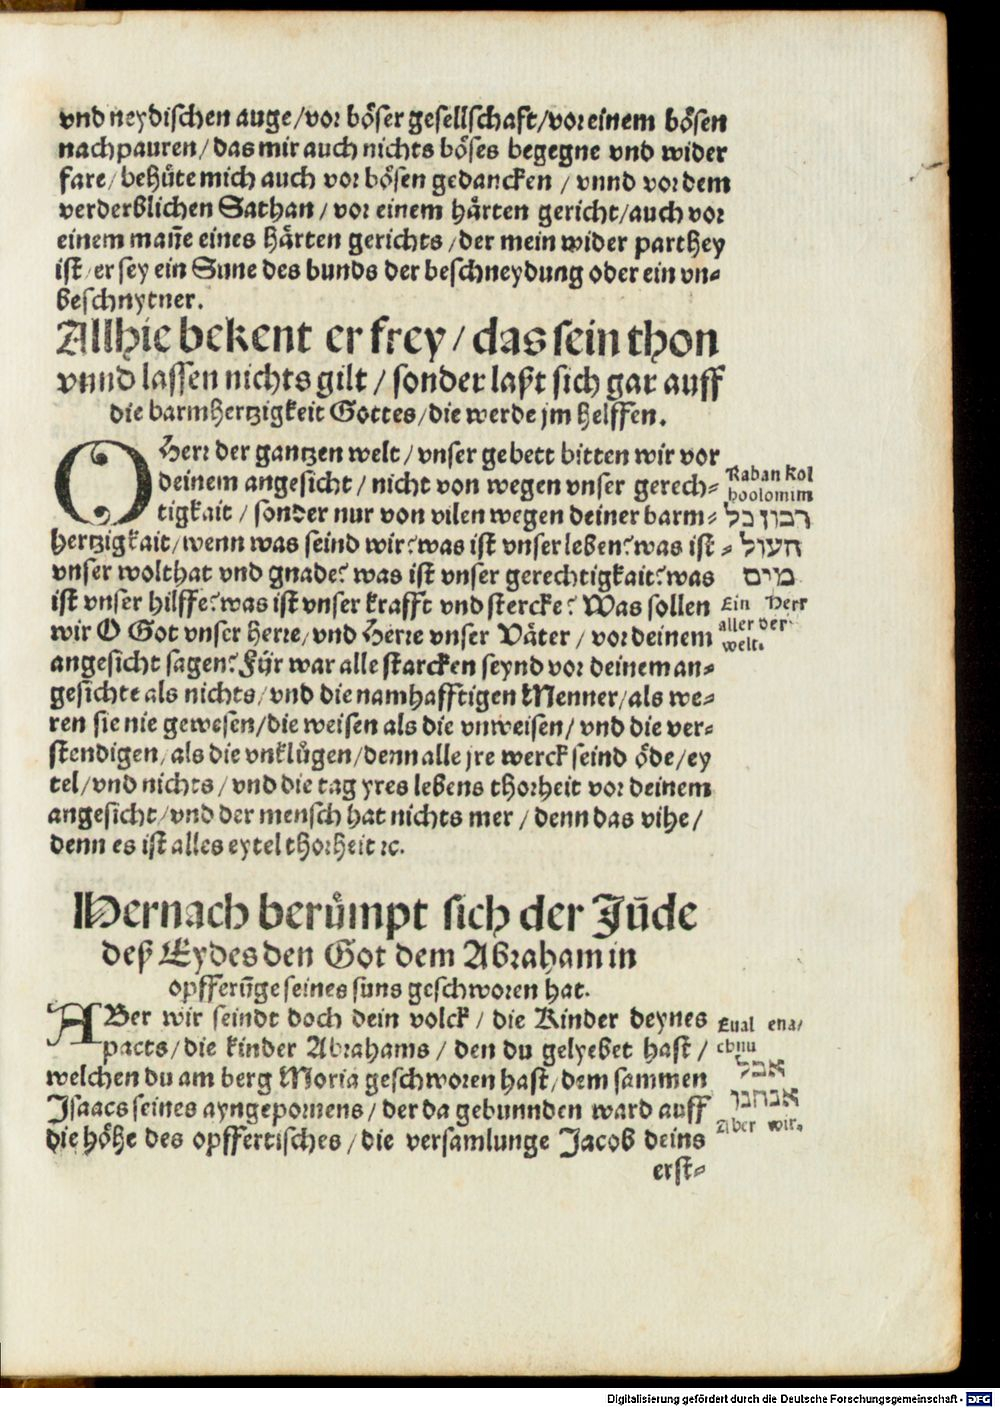 vnd neydischen auge/vor böser gesellschaft/vor einem bösen
nachpauren/das mir auch nichts böses begegne vnd wider
fare/behüte mich auch vor bösen gedancken / vnnd vor dem
verderblichen Sathan/vor einem härten gericht/auch vor
einem mañe eines härten gerichts/der mein wider parthey
ist/er sey ein Sune des bunds der beschneydung oder ein vn-
beschnytner.
Allhie bekent er frey/das sein thon
vnnd lassen nichts gilt/sonder laßt sich gar auff
die barmhertzigkeit Gottes/die werde jm helffen.
O Herr der gantzen welt/vnser gebett bitten wir vor
deinem angesicht/nicht von wegen vnser gerech-
tigkait/sonder nur von vilen wegen deiner barm-
hertzigkait/wenn was seind wir? was ist vnser leben? was ist
vnser wolthat vnd gnade? was ist vnser gerechtigkait? was
ist vnser hilffe? was ist vnser krafft vnd stercke? Was sollen
wir O Got vnser herre/vnd Herre vnser Väter/vor deinem
angesicht sagen? Für war alle starcken seynd vor deinem an-
gesichte als nichts/vnd die namhafftigen Menner/als we-
ren sie nie gewesen/die weisen als die vnweisen/vnd die ver-
stendigen/als die vnklůgen/denn alle jre werck seind öde/ey
tel/vnd nichts/vnd die tag yres lebens thorheit vor deinem
angesicht/vnd der mensch hat nichts mer/denn das vihe/
denn es ist alles eytel thorheit ꝛc.
Raban kol
hoolomim
רבון כל
העול-
מים
Ein Herr
aller der
welt.
Hernach berůmpt sich der Jüde
deß Eydes den Got dem Abraham in
opfferūge seines suns geschworen hat.
ABer wir seindt doch dein volck/die Kinder deynes
pacts/die kinder Abrahams/den du gelyebet hast/
welchen du am berg Moria geschworen hast/dem sammen
Isaacs seines ayngepornens/der da gebunnden ward auff
die höhe des opffertisches/die versamlunge Jacob deins
erst-
Eual ena/
chnu
אבל
אנחנו
Aber wir.
Digitalisierung gefördert durch die Deutsche Forschungsgemeinschaft - DFG